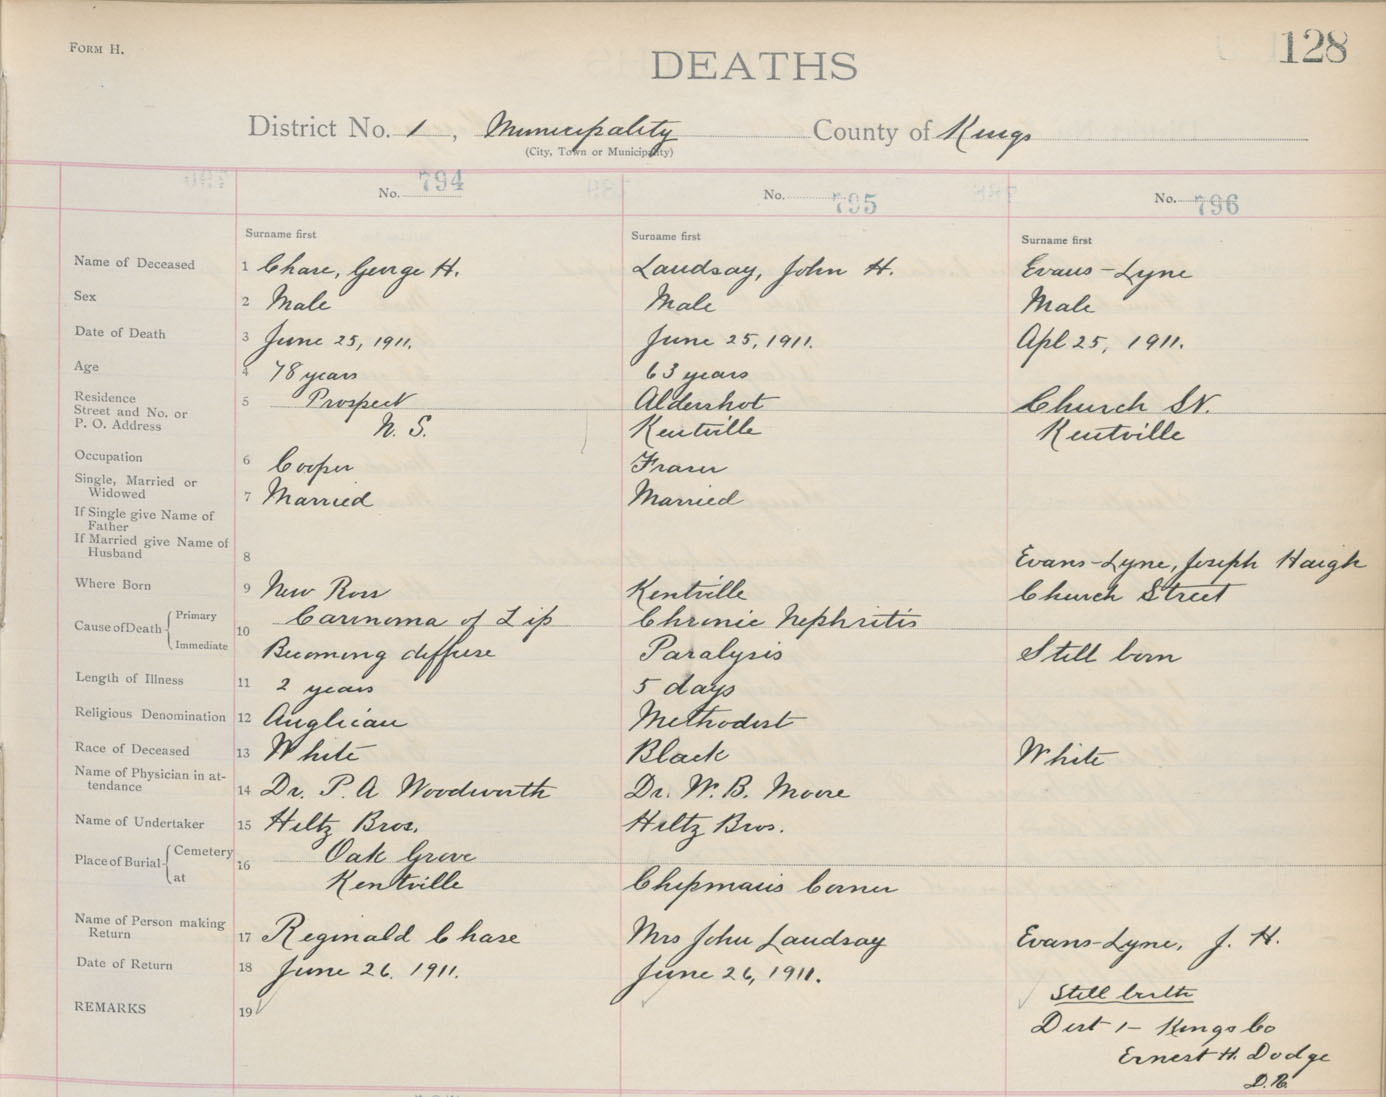 FORM H.
128
DEATHS
District No. 1, Municipality County of Kings
(City, Town or Municipality)
No. 794 No. 795 No. 796
Surname first Surname first Surname first
Name of Deceased 1 Chase, George H. Laudsay, John H. Evans-Lyne
Sex 2 Male Male Male
Date of Death 3 June 25, 1911. June 25, 1911. Apl 25, 1911.
Age 4 78 years 63 years
Residence 5 Prospect Aldershot Church St.
Street and No. or
P. O. Address N. S. Kentville Kentville
Occupation 6 Cooper
Single, Married or
Widowed 7 Married Married
If Single give Name of
Father
If Married give Name of
Husband 8 Evans-Lyne, Joseph Haigh
Where Born 9 New Ross Kentville Church Street
Cause of Death Primary 10 Carinoma of Lip Chronic Nephritis
Immediate Becoming diffuse Paralysis Still born
Length of Illness 11 2 years 5 days
Religious Denomination 12 Anglican Methodist
Race of Deceased 13 White Black White
Name of Physician in at-
tendance 14 Dr. P. A Woodworth Dr. W. B. Moore
Name of Undertaker 15 Hiltz Bros. Hiltz Bros.
Place of Burial Cemetery 16 Oak Grove
at Kentville Chipmans Corner
Name of Person making
Return 17 Reginald Chase Mrs John Laudsay Evans-Lyne, J. H.
Date of Return 18 June 26. 1911. June 26, 1911.
REMARKS 19 Still birth
Dist 1- Kings Co
Ernest H. Dodge
D.R.